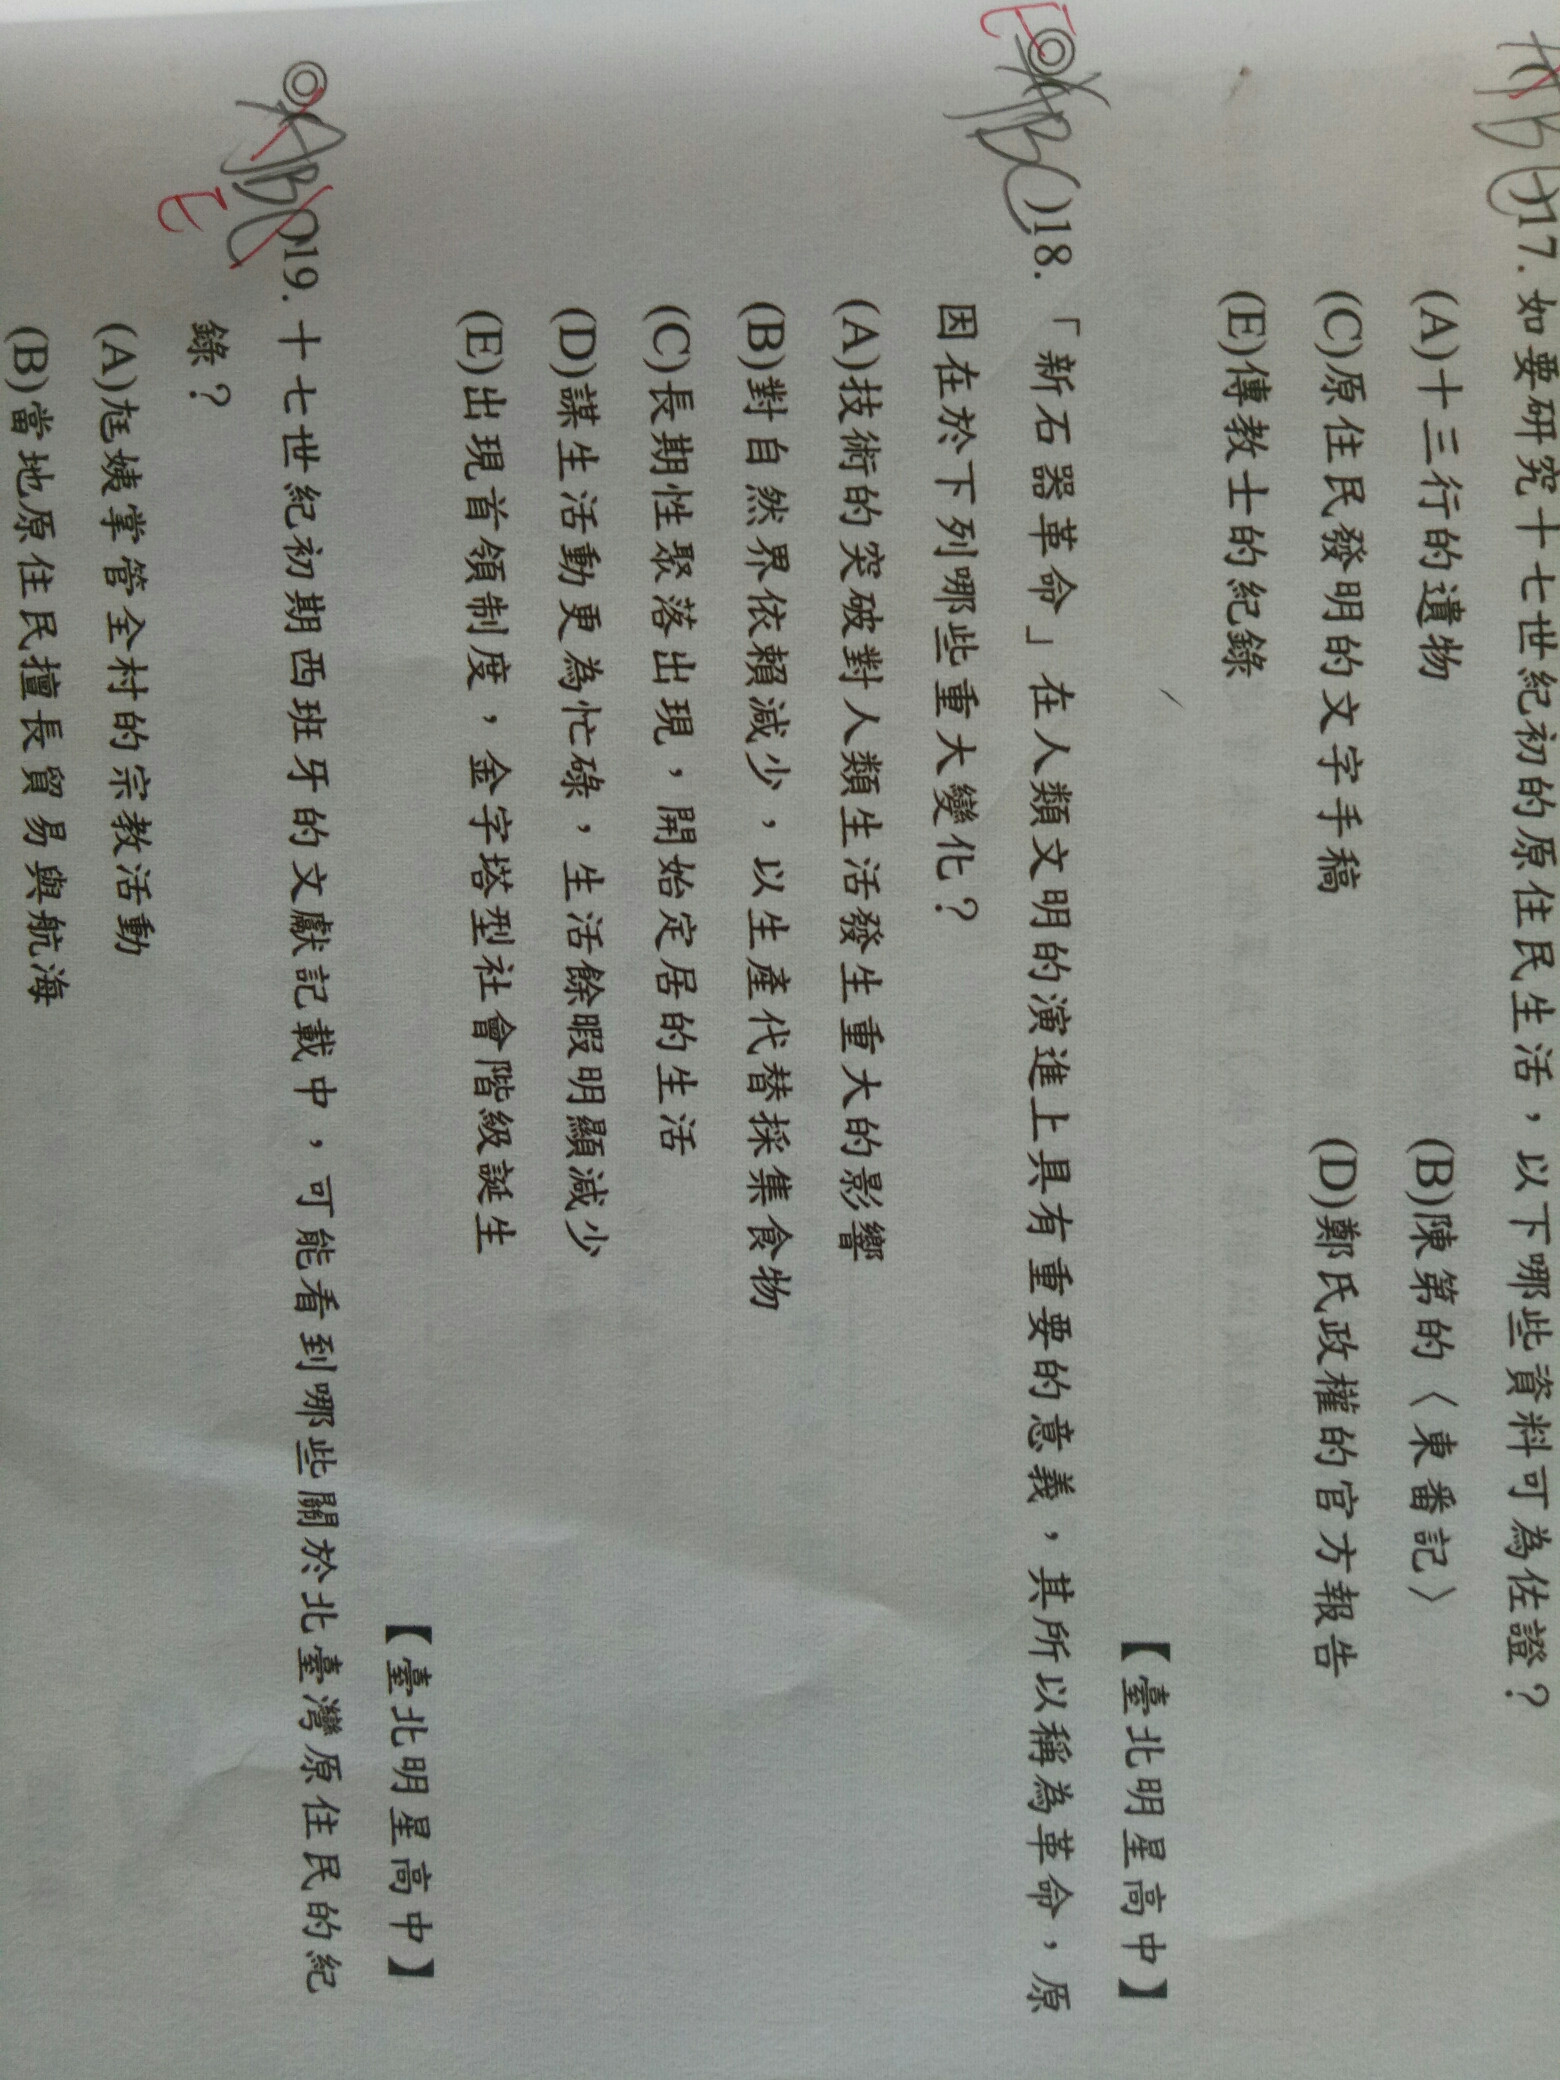 )17. 如要研究十七世紀初的原住民生活，以下哪些資料可為佐證？
(A)十三行的遺物 (B)陳第的〈東番記〉
(C)原住民發明的文字手稿 (D)鄭氏政權的官方報告
(E)傳教士的紀錄
【臺北明星高中】
E
◎ABC()18. 「新石器革命」在人類文明的演進上具有重要的意義，其所以稱為革命，原
因在於下列哪些重大變化？
(A)技術的突破對人類生活發生重大的影響
(B)對自然界依賴減少，以生產代替採集食物
(C)長期性聚落出現，開始定居的生活
(D)謀生活動更為忙碌，生活餘暇明顯減少
(E)出現首領制度，金字塔型社會階級誕生
【臺北明星高中】
◎ABC)19. 十七世紀初期西班牙的文獻記載中，可能看到哪些關於北臺灣原住民的紀
E
錄？
(A)尪姨掌管全村的宗教活動
(B)當地原住民擅長貿易與航海